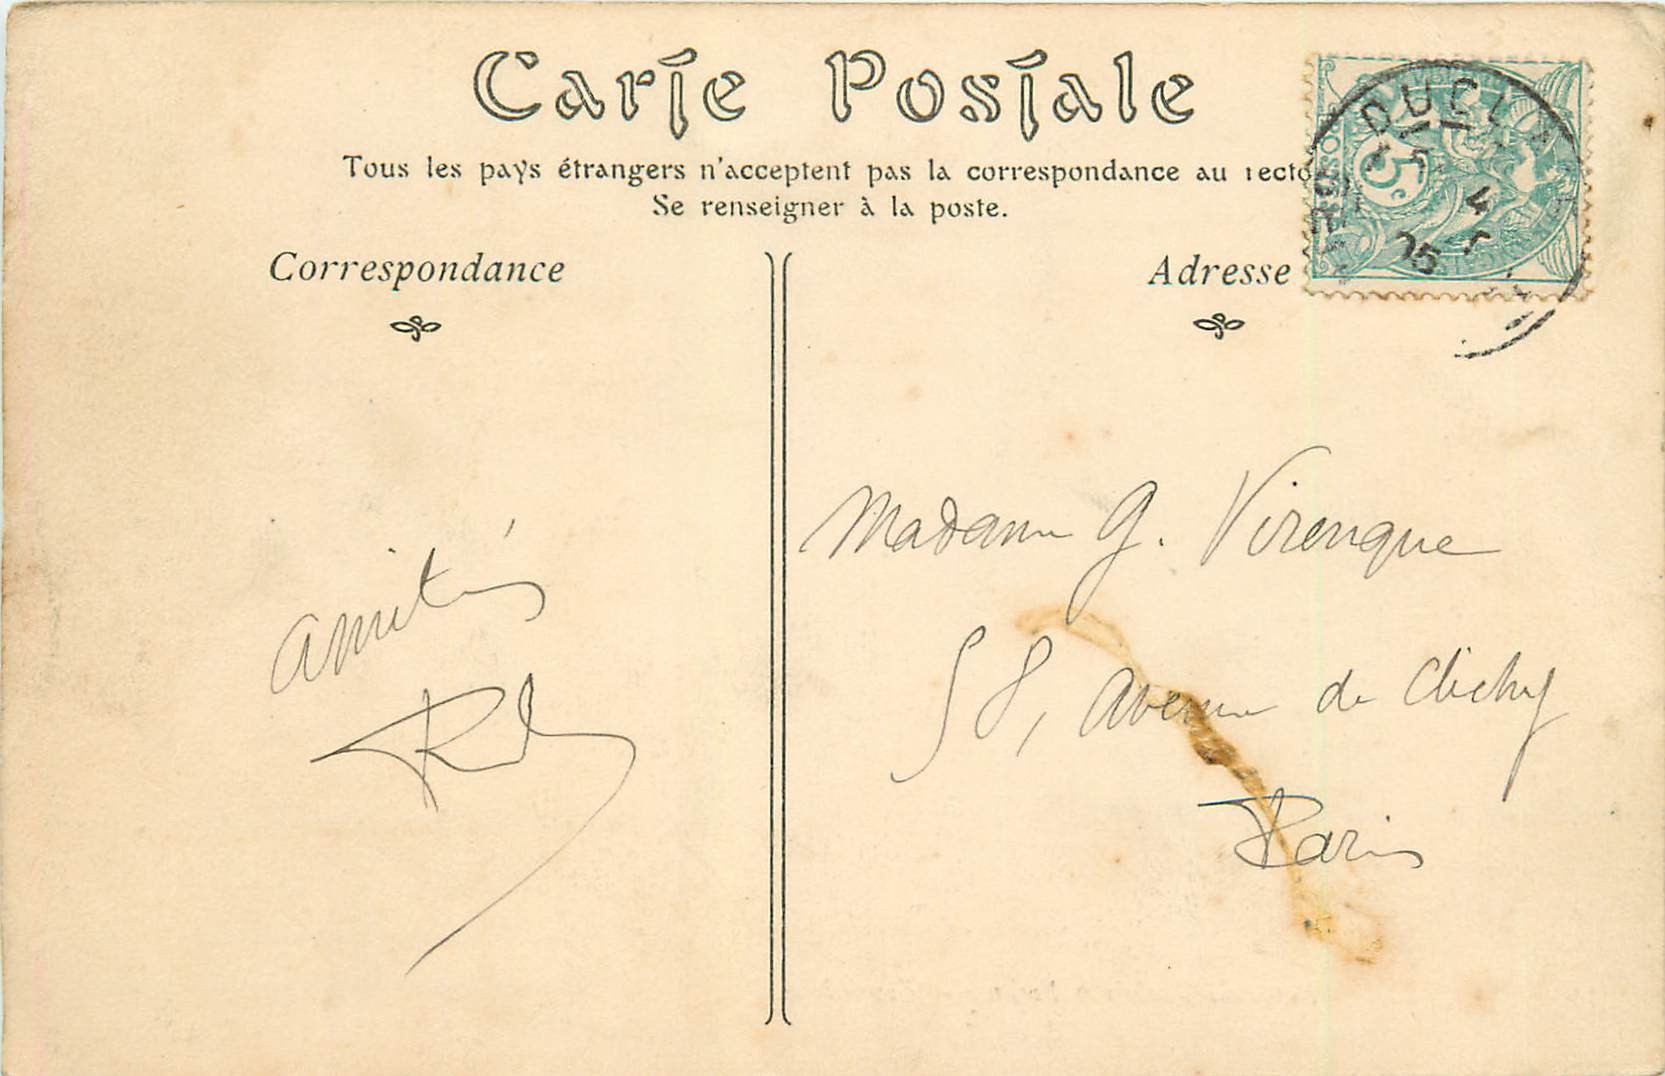 Carte Postale
Tous les pays étrangers n'acceptent pas la correspondance au recto
Se renseigner à la poste.
Correspondance
Adresse
DUCLA
5
4
05
5c
amitiés
Madame G. Virenque
58, Avenue de Clichy
Paris